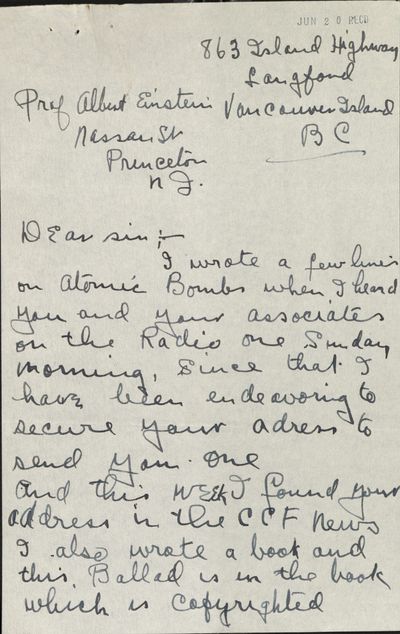 JUN 20 RECD
863 Island Highway
Langford
Prof Albert Einstein Vancouver Island
Nassau St B C
Princeton
N J.
Dear sir;-
I wrote a few lines
on Atomic Bombs when I heard
you and your associates
on the Radio one Sunday
morning, Since that I
have been endeavoring to
secure your adress to
send you one
And this week I found your
address in the CCF News
I also wrote a book and
this Ballad is in the book
which is copyrighted